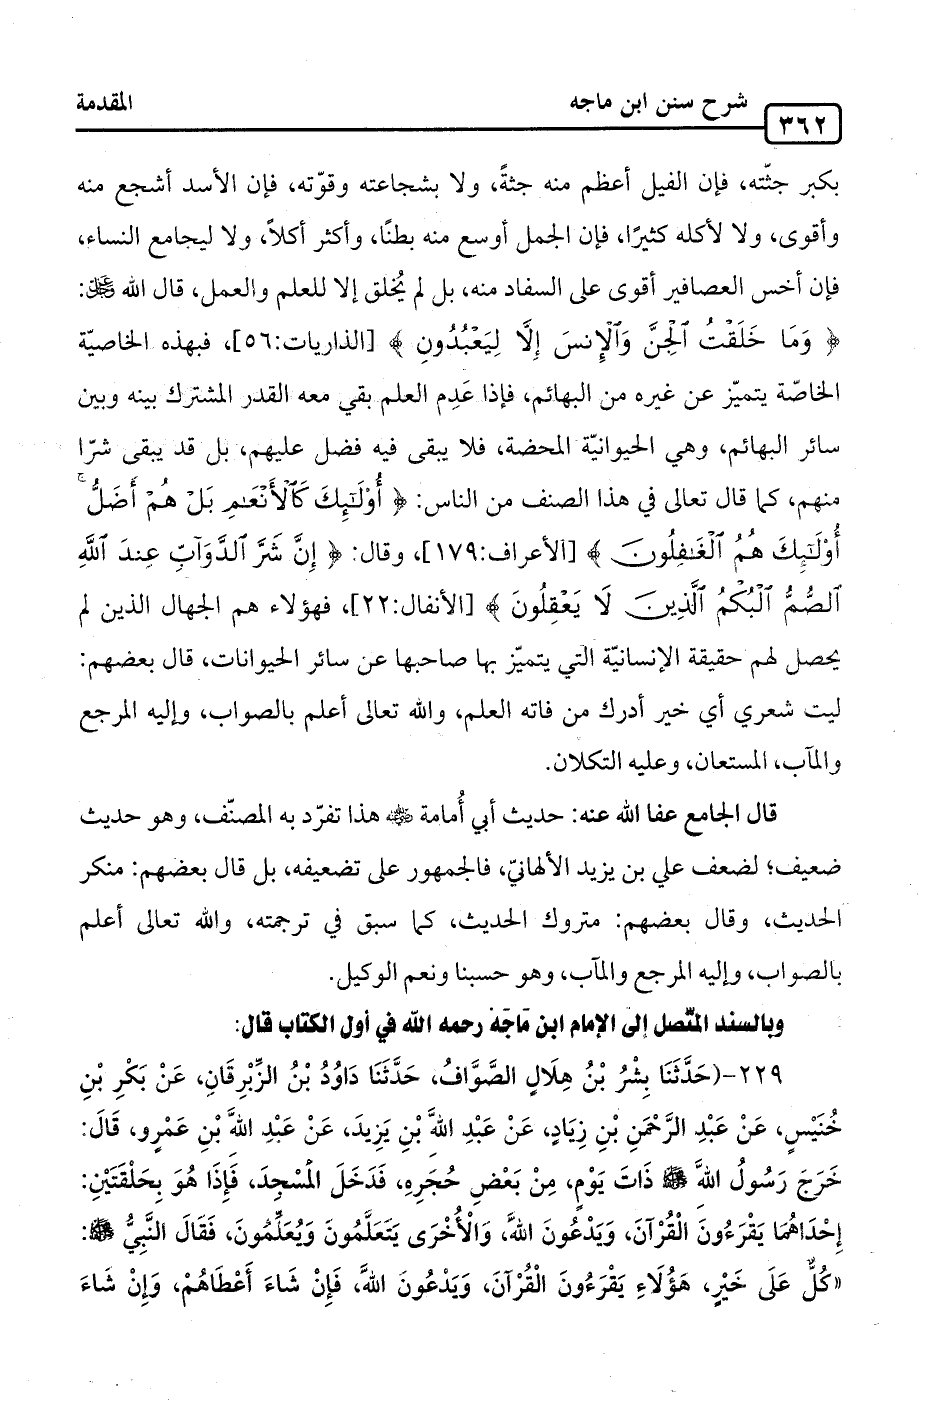 شرح سنن ابن ماجه
المقدمة
٣٦٢
بكبر جثّته، فإن الفيل أعظم منه جثةً، ولا بشجاعته وقوّته، فإن الأسد أشجع منه
وأقوى، ولا لأكله كثيرًا، فإن الجمل أوسع منه بطنًا، وأكثر أكلاً، ولا ليجامع النساء،
فإن أخس العصافير أقوى على السفاد منه، بل لم يُخلق إلا للعلم والعمل، قال الله ﷻ:
﴿ وَمَا خَلَقْتُ ٱلْجِنَّ وَٱلْإِنسَ إِلَّا لِيَعْبُدُونِ ﴾ [الذاريات:٥٦]، فبهذه الخاصيّة
الخاصّة يتميّز عن غيره من البهائم، فإذا عَدِم العلم بقي معه القدر المشترك بينه وبين
سائر البهائم، وهي الحيوانيّة المحضة، فلا يبقى فيه فضل عليهم، بل قد يبقى شرّا
منهم، كما قال تعالى في هذا الصنف من الناس: ﴿ أُوْلَٰٓئِكَ كَٱلْأَنْعَٰمِ بَلْ هُمْ أَضَلُّ ۚ
أُوْلَٰٓئِكَ هُمُ ٱلْغَٰفِلُونَ ﴾ [الأعراف:١٧٩]، وقال: ﴿ إِنَّ شَرَّ ٱلدَّوَآبِّ عِندَ ٱللَّهِ
ٱلصُّمُّ ٱلْبُكْمُ ٱلَّذِينَ لَا يَعْقِلُونَ ﴾ [الأنفال:٢٢]، فهؤلاء هم الجهال الذين لم
يحصل لهم حقيقة الإنسانيّة التي يتميّز بها صاحبها عن سائر الحيوانات، قال بعضهم:
ليت شعري أي خير أدرك من فاته العلم، والله تعالى أعلم بالصواب، وإليه المرجع
والمآب، المستعان، وعليه التكلان.
قال الجامع عفا الله عنه: حديث أبي أُمامة ﷺ هذا تفرّد به المصنّف، وهو حديث
ضعيف؛ لضعف علي بن يزيد الألهانيّ، فالجمهور على تضعيفه، بل قال بعضهم: منكر
الحديث، وقال بعضهم: متروك الحديث، كما سبق في ترجمته، والله تعالى أعلم
بالصواب، وإليه المرجع والمآب، وهو حسبنا ونعم الوكيل.
وبالسند المتّصل إلى الإمام ابن مَاجَهْ رحمه الله في أول الكتاب قال:
٢٢٩-(حَدَّثَنَا بِشْرُ بْنُ هِلَالٍ الصَّوَّافُ، حَدَّثَنَا دَاوُدُ بْنُ الزِّبْرِقَانِ، عَنْ بَكْرِ بْنِ
خُنَيْسٍ، عَنْ عَبْدِ الرَّحْمَنِ بْنِ زِيَادٍ، عَنْ عَبْدِ اللهِ بْنِ يَزِيدَ، عَنْ عَبْدِ اللهِ بْنِ عَمْرٍو، قَالَ:
خَرَجَ رَسُولُ اللهِ ﷺ ذَاتَ يَوْمٍ، مِنْ بَعْضِ حُجَرِهِ، فَدَخَلَ الْمَسْجِدَ، فَإِذَا هُوَ بِحَلْقَتَيْنِ:
إِحْدَاهُمَا يَقْرَءُونَ الْقُرْآنَ، وَيَدْعُونَ اللهَ، وَالْأُخْرَى يَتَعَلَّمُونَ وَيُعَلِّمُونَ، فَقَالَ النَّبِيُّ ﷺ:
«كُلٌّ عَلَى خَيْرٍ، هَؤُلَاءِ يَقْرَءُونَ الْقُرْآنَ، وَيَدْعُونَ اللهَ، فَإِنْ شَاءَ أَعْطَاهُمْ، وَإِنْ شَاءَ